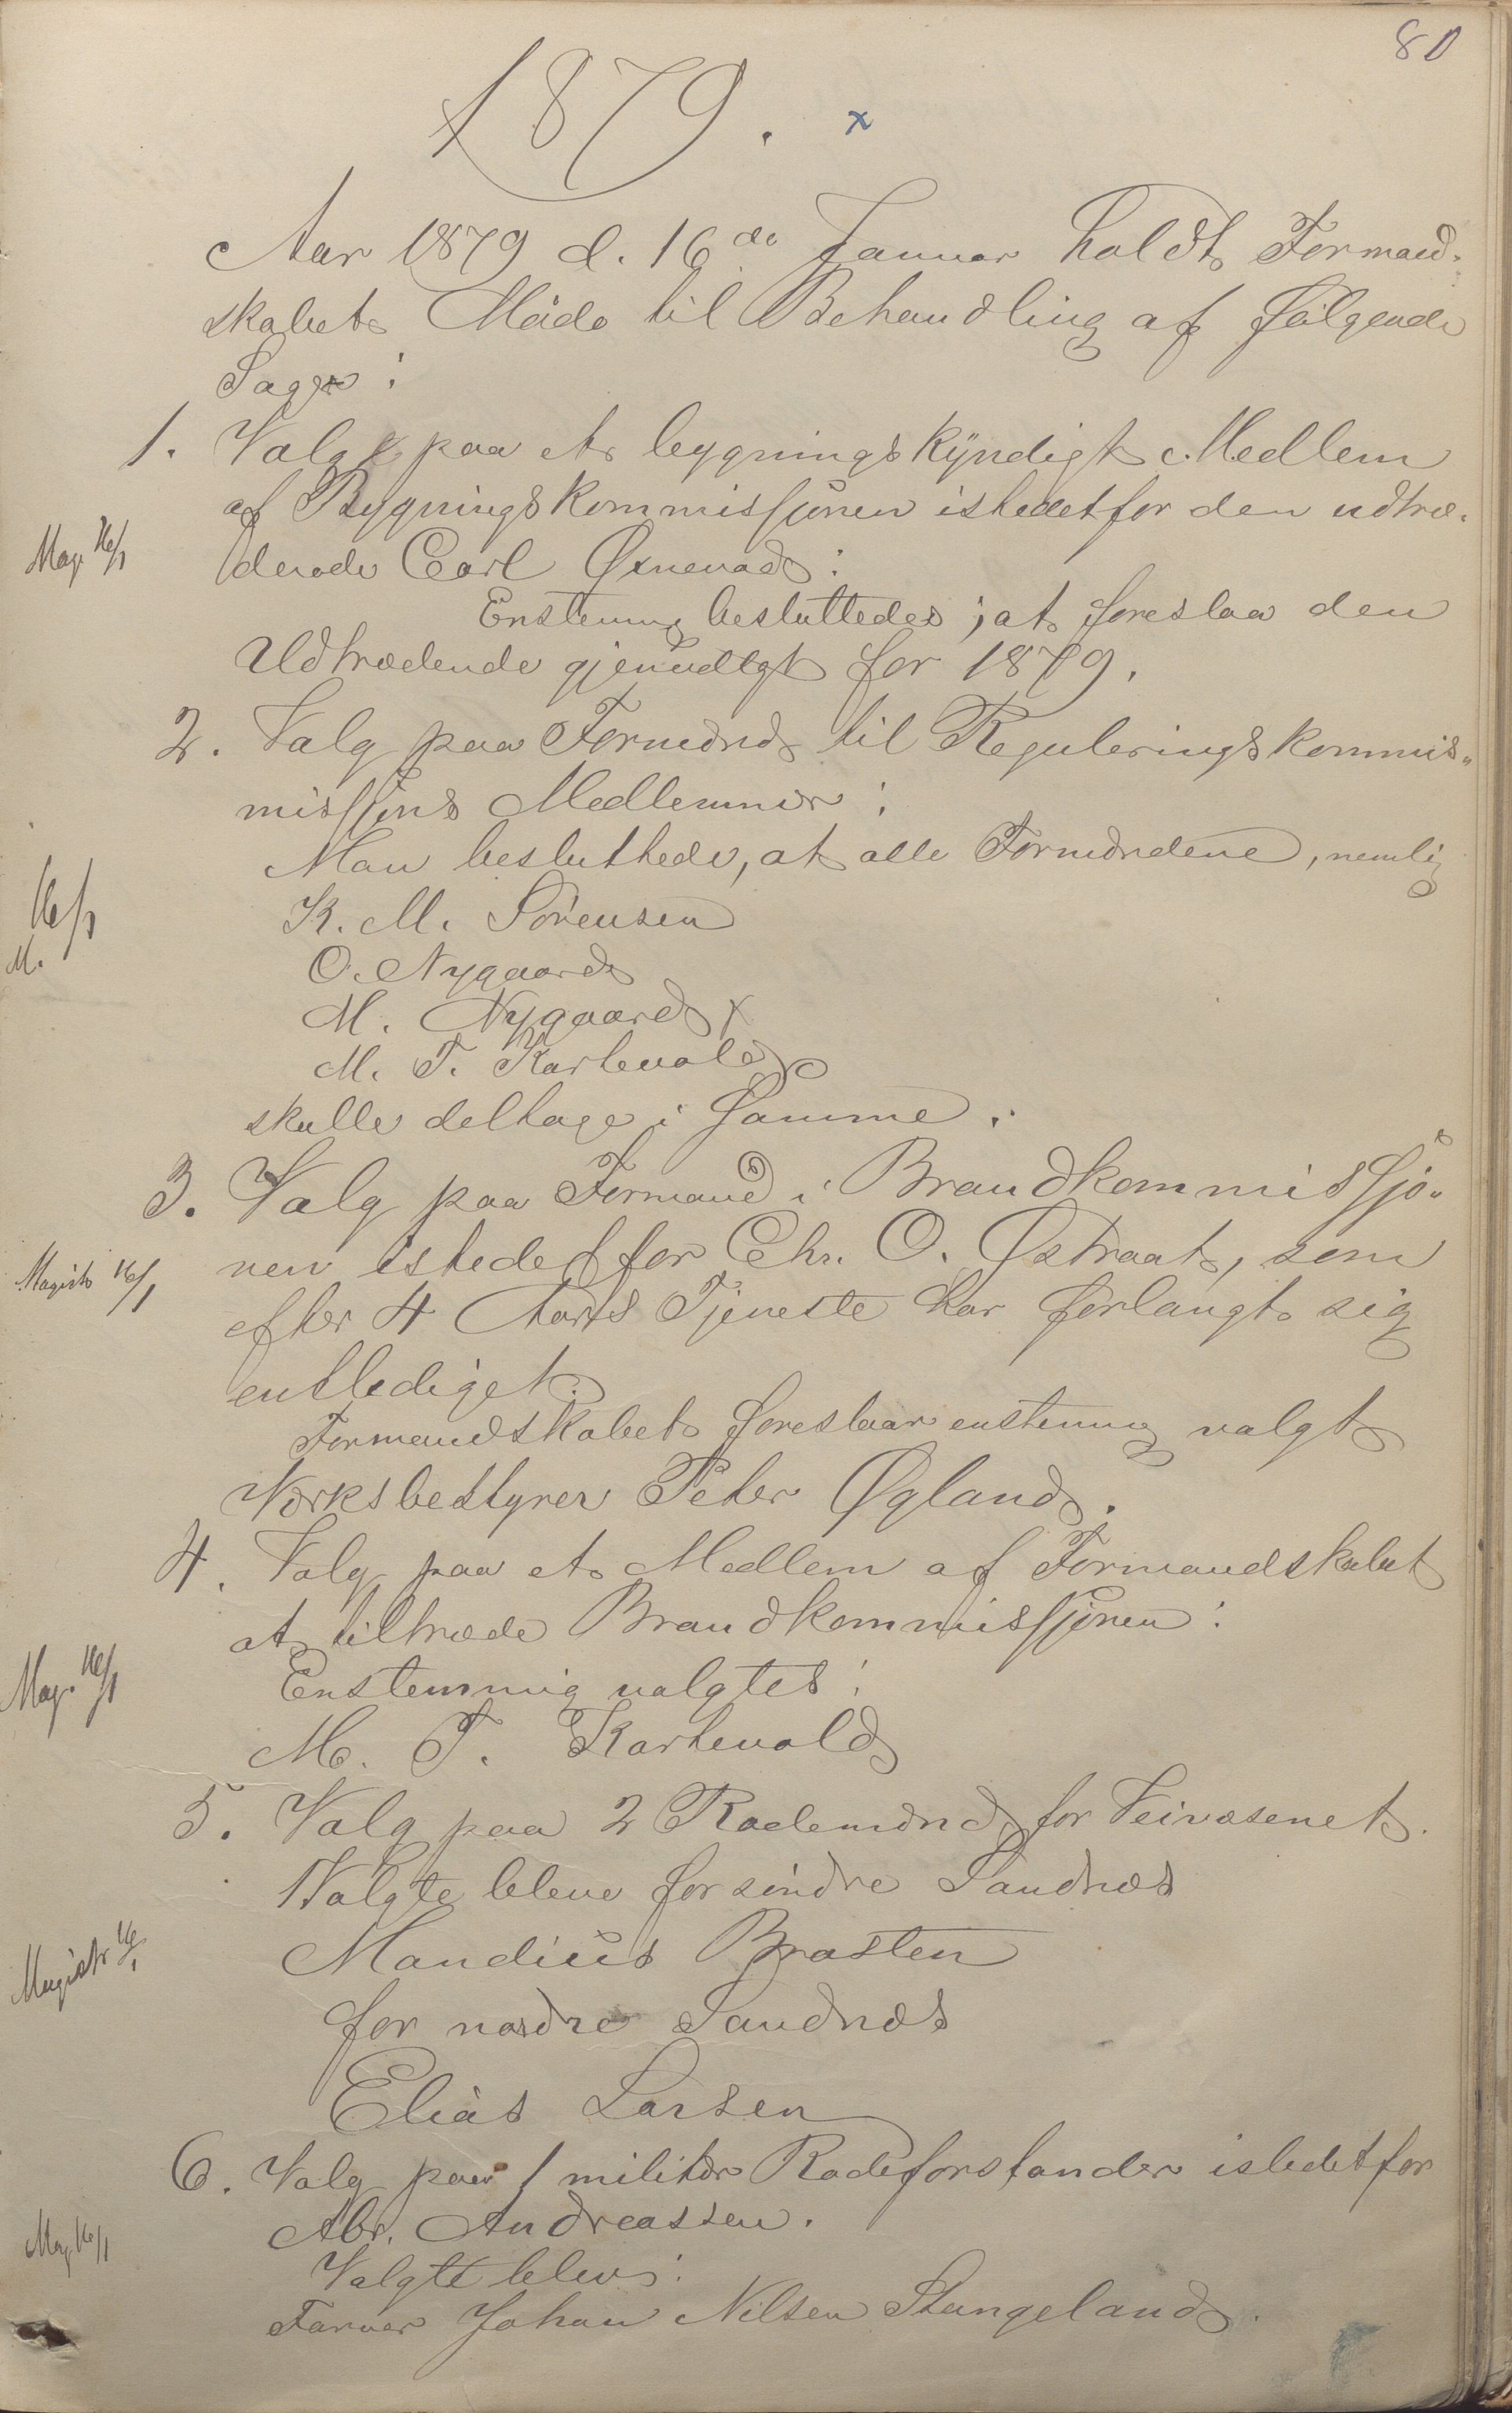 80
1879. x
Aar 1879 d. 16de Januar holdt Formand-
skabet Møde til Behandling af følgende
Sager:
1. Valg paa et bygningskyndigt Medlem
af Bygningskommissjonen istedetfor den udtræ-
Mag. 16/1
dende Carl Øxnevad:
Enstemmig besluttedes; at foreslaa den
Udtrædende gjenvalgt for 1879.
2. Valg paa Formænd til Reguleringskommis-
missjons Medlemmer:
Man besluttede, at alle Formændene, nemlig
16/1
K. M. Sørensen
M.
O. Nygaard
M. Nygaard x
M. T. Kartevold
skulle deltage i Samme.
3. Valg paa Formand i Brandkommissjo-
nen istedetfor Chr. O. Østraat, som
Magist 16/1
efter 4 Aars Tjeneste har forlangt sig
entlediget.
Formandskabet foreslaar enstemmig valgt
Værksbestyrer Peter Øgland.
4. Valg paa et Medlem af Formandskabet
at tiltræde Brandkommissjonen:
Mag. 16/1
Enstemmig valgtes:
M. T. Kartevold
5. Valg paa 2 Rodemænd for Veivæsenet.
Valgte bleve for søndre Sandnæs
Magistr 16/1
Mandius Brasten
for nordre Sandnæs
Elias Larsen
6. Valg paa 1 militær Rodeforstander istedetfor
Mag 16/1
Abr. Andreassen.
Valgte blev:
Farver Johan Nilsen Stangeland.